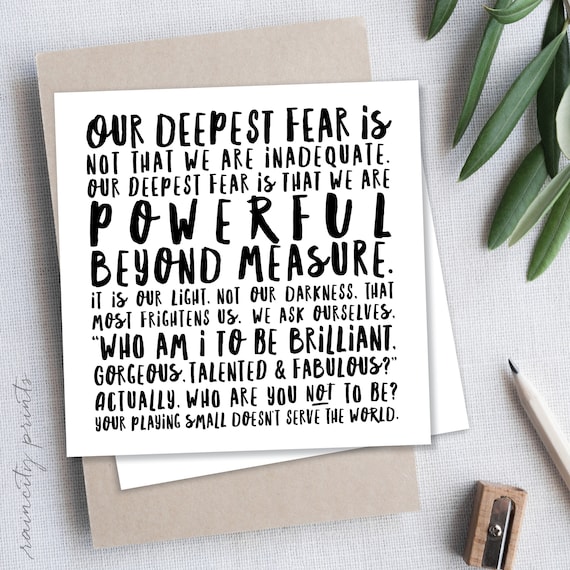 OUR DEEPEST FEAR iS
NOT THAT WE ARE iNADEQUATE.
OUR DEEPEST FEAR iS THAT WE ARE
POWERFUL
BEYOND MEASURE.
iT iS OUR LiGHT, NOT OUR DARKNESS, THAT
MOST FRiGHTENS US. WE ASK OURSELVES,
"WHO AM i TO BE BRiLLiANT,
GORGEOUS, TALENTED & FABULOUS?"
ACTUALLY, WHO ARE YOU NOT TO BE?
YOUR PLAYiNG SMALL DOESN'T SERVE THE WORLD.
raincity prints